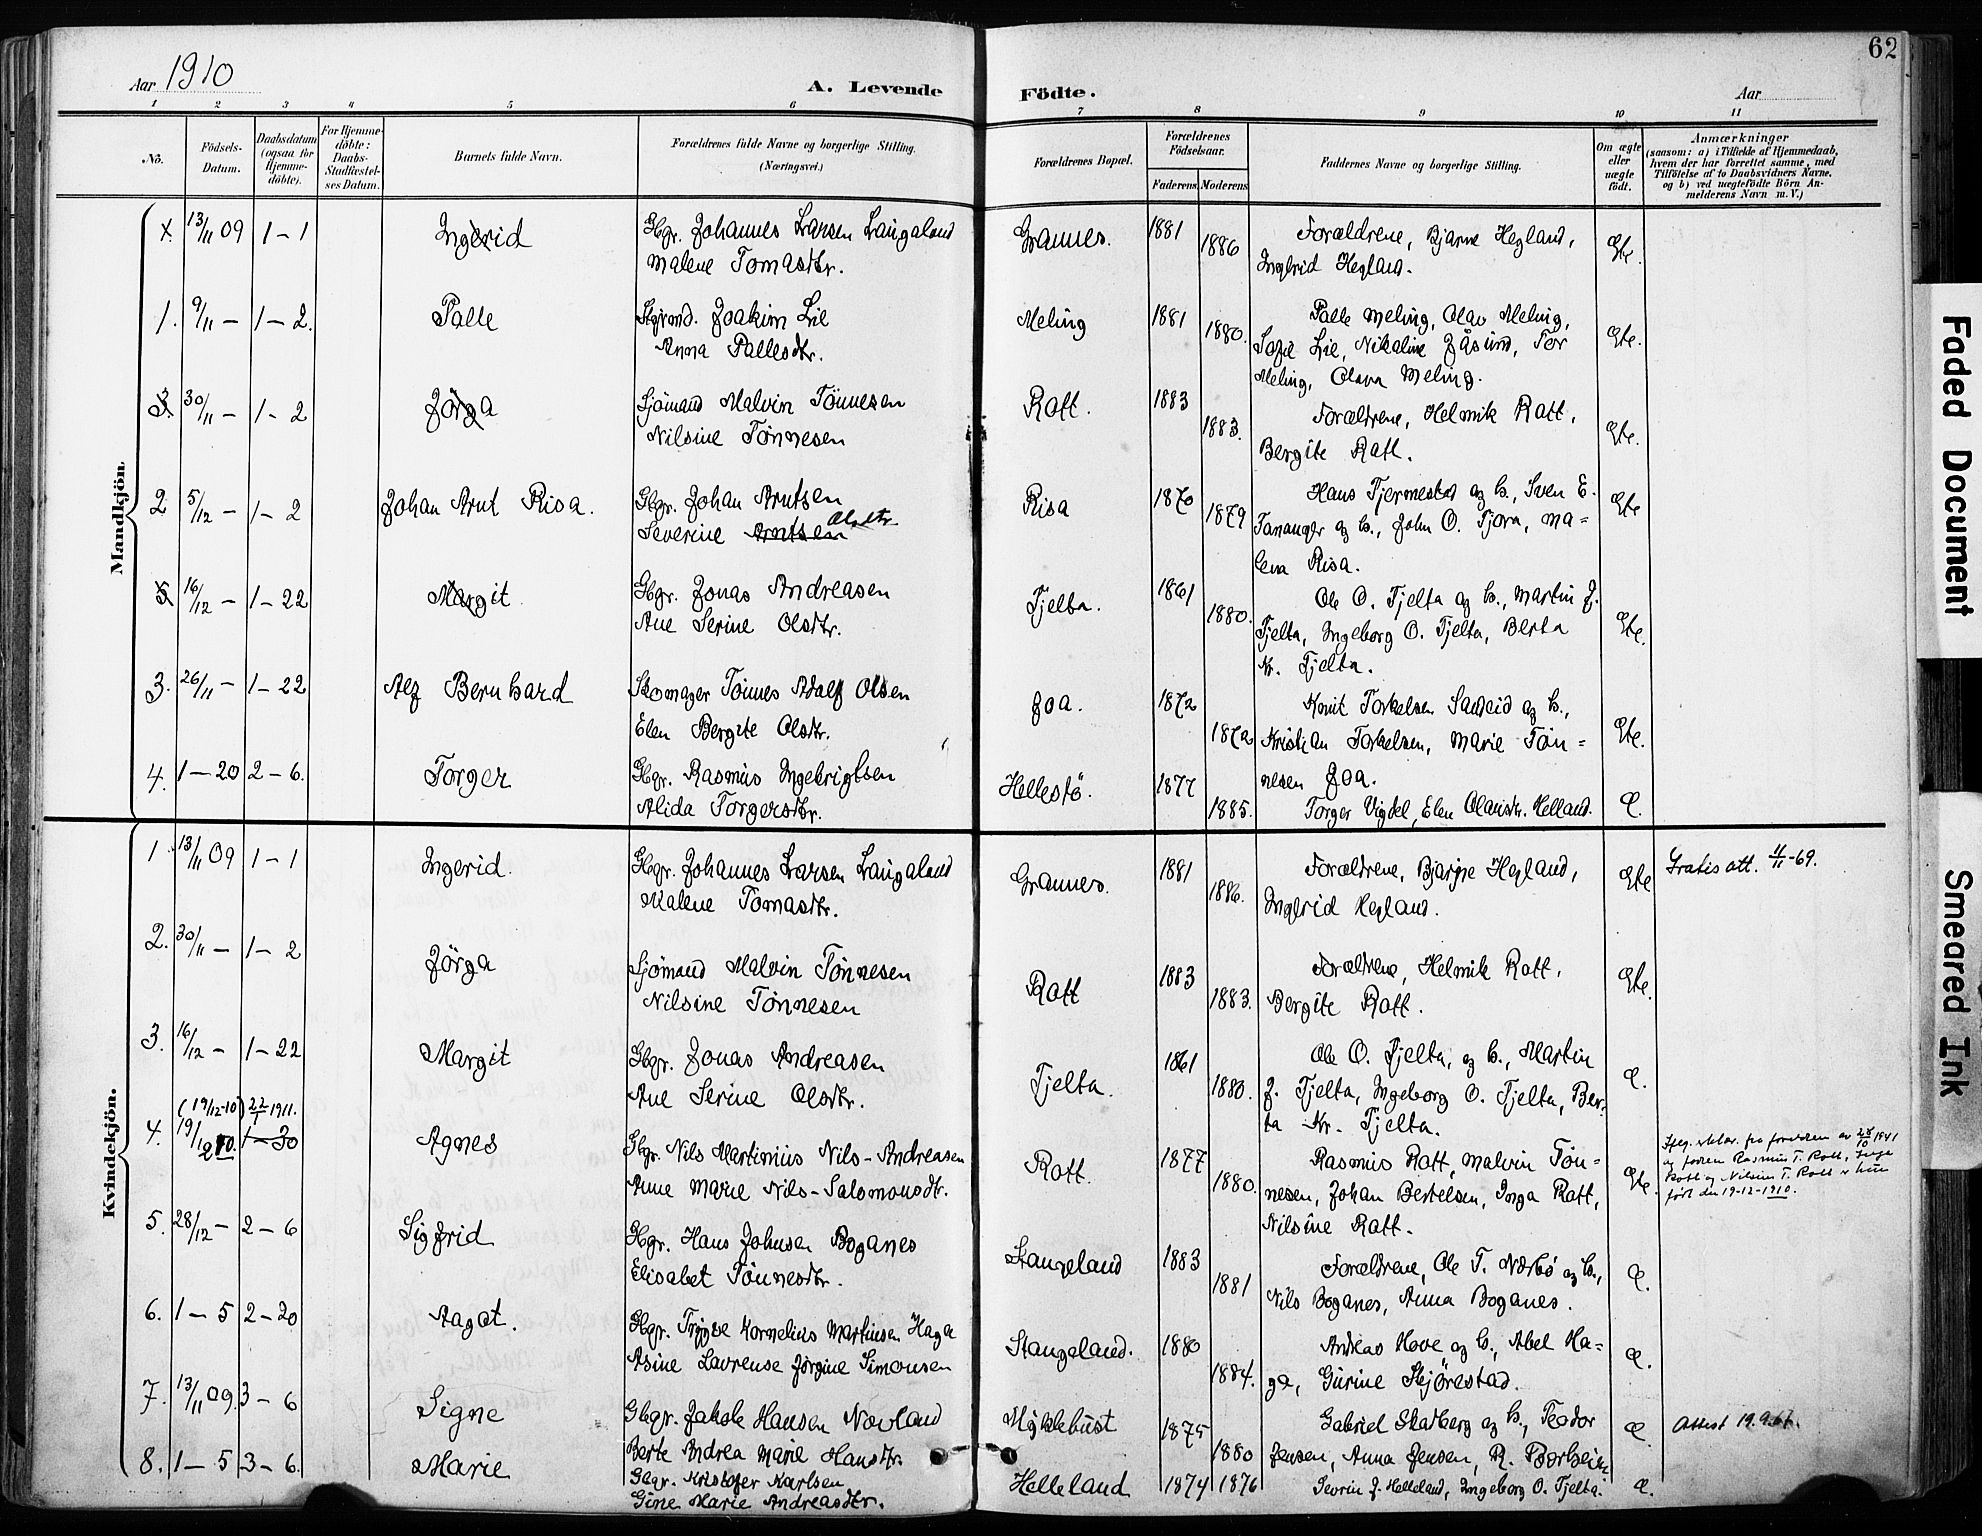 62
Aar 1910
A. Levende Födte.
Aar
1 2 3 4 5 6 7 8 9 10 11
No.
Födsels-Datum.
Daabsdatum (ogsaa for Hjemme-döbte).
For Hjemme-döbte: Daabs-Stadfæstel-ses Datum.
Barnets fulde Navn.
Forældrenes fulde Navne og borgerlige Stilling.
(Næringsvei.)
Forældrenes Bopæl.
Forældrenes Födselsaar.
Faderens Moderens
Faddernes Navne og borgerlige Stilling.
Om ægte eller uægte födt.
Anmærkninger
(saasom: a) i Tilfælde af Hjemmedaab, hvem der har forrettet samme, med Tilföielse af to Daabsvidners Navne, og b) ved uægtefödte Börn An-melderens Navn m.V.)
Mandkjön.
1. 13/11 09 1-1 Ingerid Gbgr. Johannes Larsen Laugaland Grannes. 1881 Forældrene, Bjarne Hegland, Egte.
Malene Tomasdtr. 1886 Ingfrid Hegland.
1. 9/11 - 1-2. Palle Styrmd. Joakim Lie Meling 1881 Palle Meling, Olav Meling, Egte.
Anna Pallesdtr. 1880. Sofie Lie, Nikaline Jåsund, Tor
Meling, Olava Meling.
3. 30/11 - 1-2 Jörga Sjömand Malvin Tönnesen Rott. 1883 Forældrene, Helmik Rott, Egte.
Nilsine Tönnesen 1883. Bergite Rott.
2 5/12 - 1-2 Johan Arnt Risa. Gbgr. Johan Arntsen Risa 1870 Hans Tjermestad og h., Sven E. Egte
Severine Arntsen Olsdtr. 1879 Tananger og h., John O. Tjora, Ma=
lena Risa.
5 16/12 - 1-22 Margit. Gbgr. Jonas Andreasen Tjelta. 1861 Ole O. Tjelta og h., Martin J. Egte.
Ane Serine Olsdtr. 1880. Tjelta, Ingeborg O. Tjelta, Berta
Kr. Tjelta.
3. 26/11 - 1-22 Alf Bernhard Skomager Tönnes Adolf Olsen Joa. 1872 Knut Torkelsen Sandeid og h., Egte.
Elen Bergite Olsdtr. 1872 Kristian Torkelsen, Marie Tön=
nesen Joa.
4. 1-20 2-6. Torger Gbgr. Rasmus Ingebrigtsen Hellestö. 1877
Alida Torgersdtr. 1885. Torger Vigdel, Elen Olavsdtr. Helland. Æ.
Kvindekjön.
1. 13/11 09 1-1 Ingerid. Gbgr. Johannes Larsen Laugaland Grannes. 1881 Forældrene, Bjarne Hegland, Egte Gratis att. 11/11-69.
Malene Tomasdtr. 1886. Ingfrid Hegland.
2. 30/11 - 1-2 Jörga Sjömand Malvin Tönnesen Rott 1883 Forældrene, Helmik Rott, Egte.
Nilsine Tönnesen 1883. Bergite Rott.
3. 16/12 - 1-22 Margit Gbgr. Jonas Andreasen Tjelta. 1861 Ole O. Tjelta, og h., Martin Æ.
Ane Serine Olsdtr. 1880. J. Tjelta, Ingeborg O. Tjelta, Ber=
ta Kr. Tjelta.
(19/12-10) 22/1 1911.
4. 19/12 10. 1-30 Agnes Gbgr. Nils Martinius Nils-Andreasen Rott. 1877 Rasmus Rott, Malvin Tön= Egte.
Anne Marie Nils-Salomonsdtr. 1880. nesen, Johan Bertelsen, Inga Rott,
Nilsine Rott.
fra av 28/10 1941
og Rasmus T. Rott, Inga
Rott og Nilsine T. Rott
født den 19-12-1910.
5. 28/12 - 2-6 Sigfrid Gbgr. Hans Johnsen Boganes Stangeland 1883 Forældrene, Ole T. Nærbö og h., Æ.
Elisabet Tönnesdtr. 1881 Nils Boganes, Anna Boganes.
6. 1-5 2-20 Aagot. Gbgr. Trygve Kornelius Martinsen Haga Stangeland. 1880 Andreas Hove og h., Abel Ha= Æ.
Asine Lavrense Jörgine Simonsen 1884. ga, Gurine Skjörestad.
7. 13/11 09. 3-6 Signe Gbgr. Jakob Hansen Norland Myklebust 1875 Gabriel Skadberg og h., Teodor Æ. Attest 19.9.66.
Berte Andrea Marie Hansdtr. 1880 Jensen, Anna Jensen,
8. 1-5 3-6. Marie Gbgr. Kristofer Karlsen Helleland 1874 1876 Sevrin J. Helleland, Ingeborg O. Tjelta. Æ.
Gine Marie Andreasdtr.
Faded Document
Smeared Ink